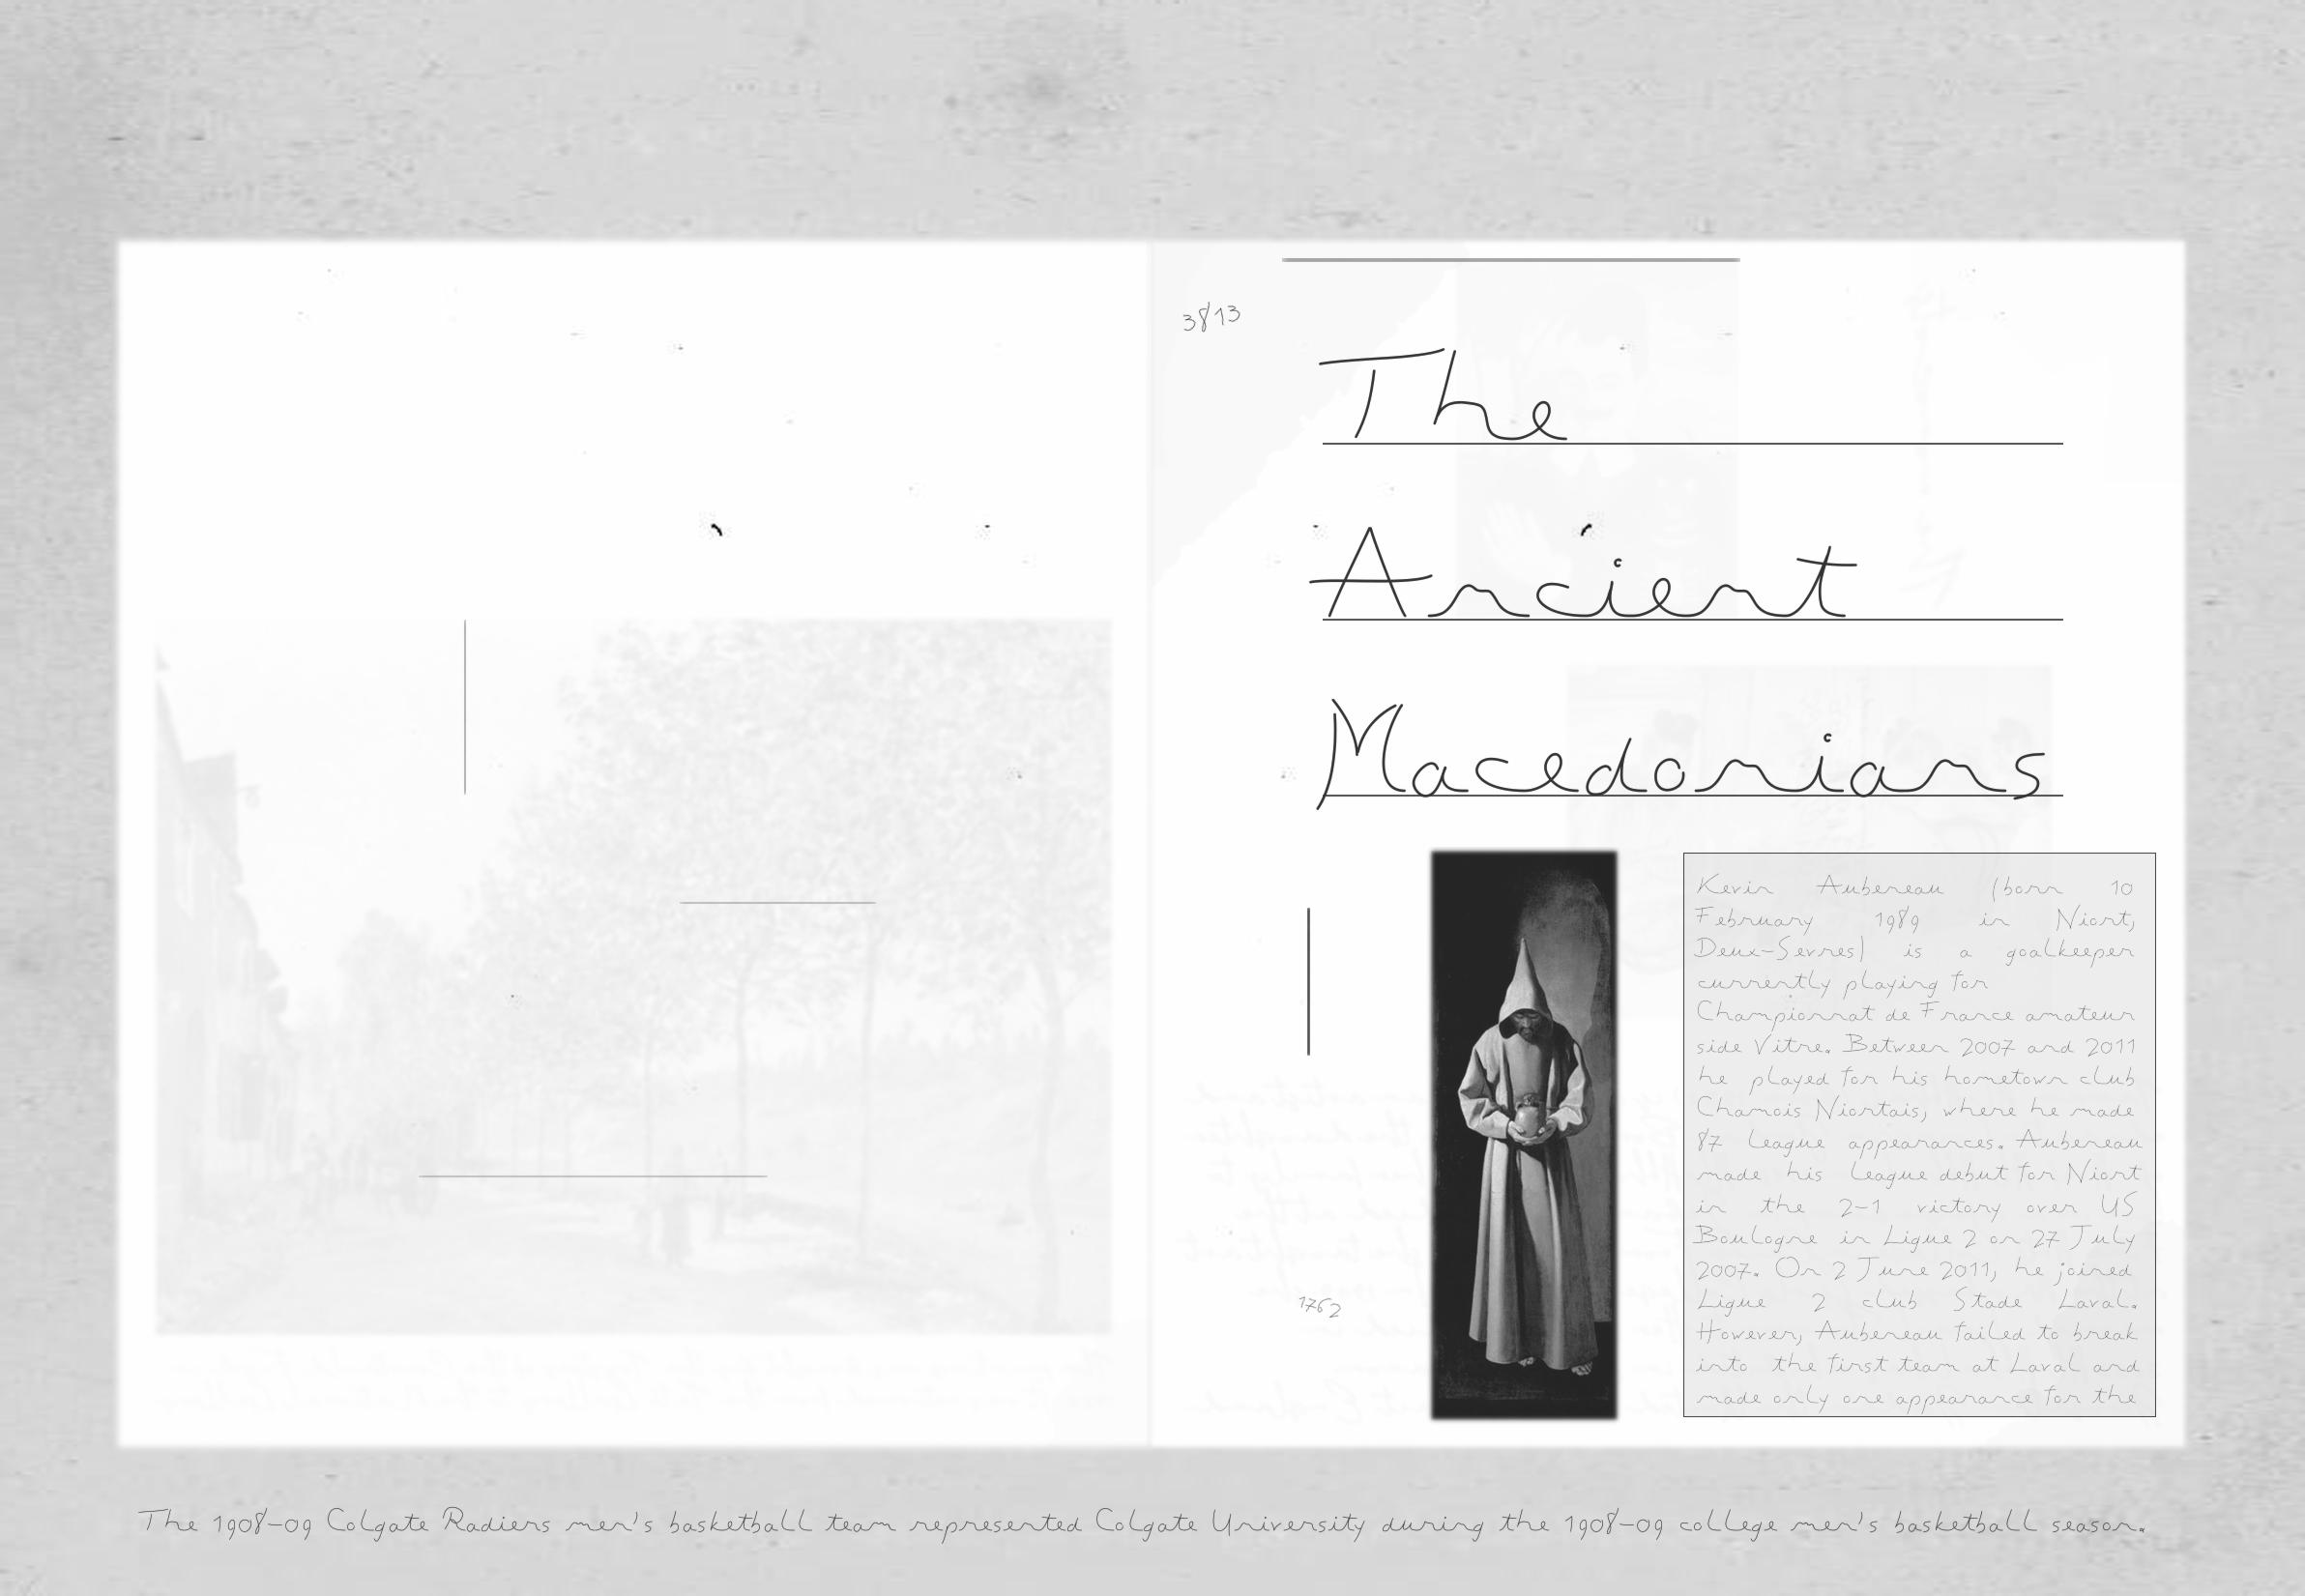 3813
The
Ancient
Macedonians
Kevin Aubeneau (born 10
February 1989 in Niort,
Deux-Sevres) is a goalkeeper
currently playing for
Championnat de France amateur
side Vitre. Between 2007 and 2011
he played for his hometown club
Chamois Niortais, where he made
87 league appearances. Aubeneau
made his league debut for Niort
in the 2-1 victory over US
Boulogne in Ligue 2 on 27 July
2007. On 2 June 2011, he joined
Ligue 2 club Stade Laval.
However, Aubeneau failed to break
into the first team at Laval and
made only one appearance for the
1762
The 1908-09 Colgate Radiers men's basketball team represented Colgate University during the 1908-09 college men's basketball season.